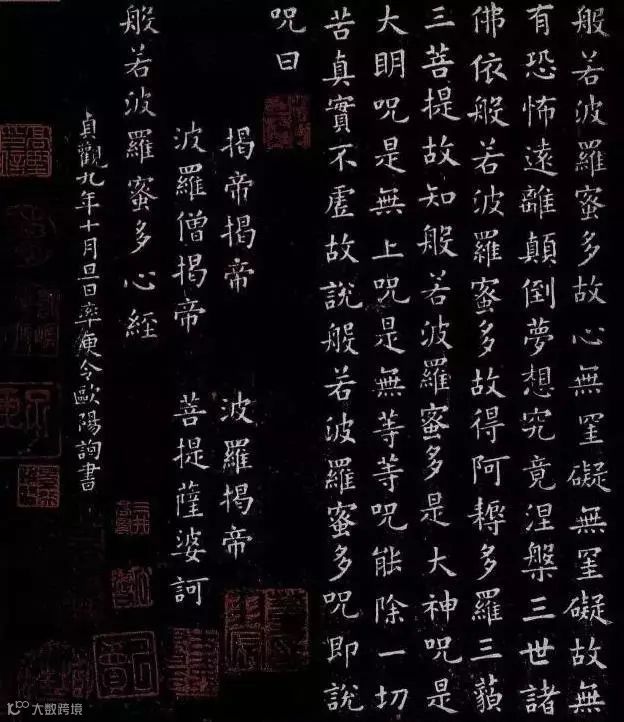 般若波羅蜜多故心無罣礙無罣礙故無
有恐怖遠離顛倒夢想究竟涅槃三世諸
佛依般若波羅蜜多故得阿耨多羅三藐
三菩提故知般若波羅蜜多是大神呪是
大眀呪是無上呪是無等等呪能除一切
苦真實不虛故說般若波羅蜜多呪即說
呪曰
揭帝揭帝 波羅揭帝
波羅僧揭帝 菩提薩婆訶
般若波羅蜜多心經
貞觀九年十月旦日率更令歐陽詢書
大数跨境